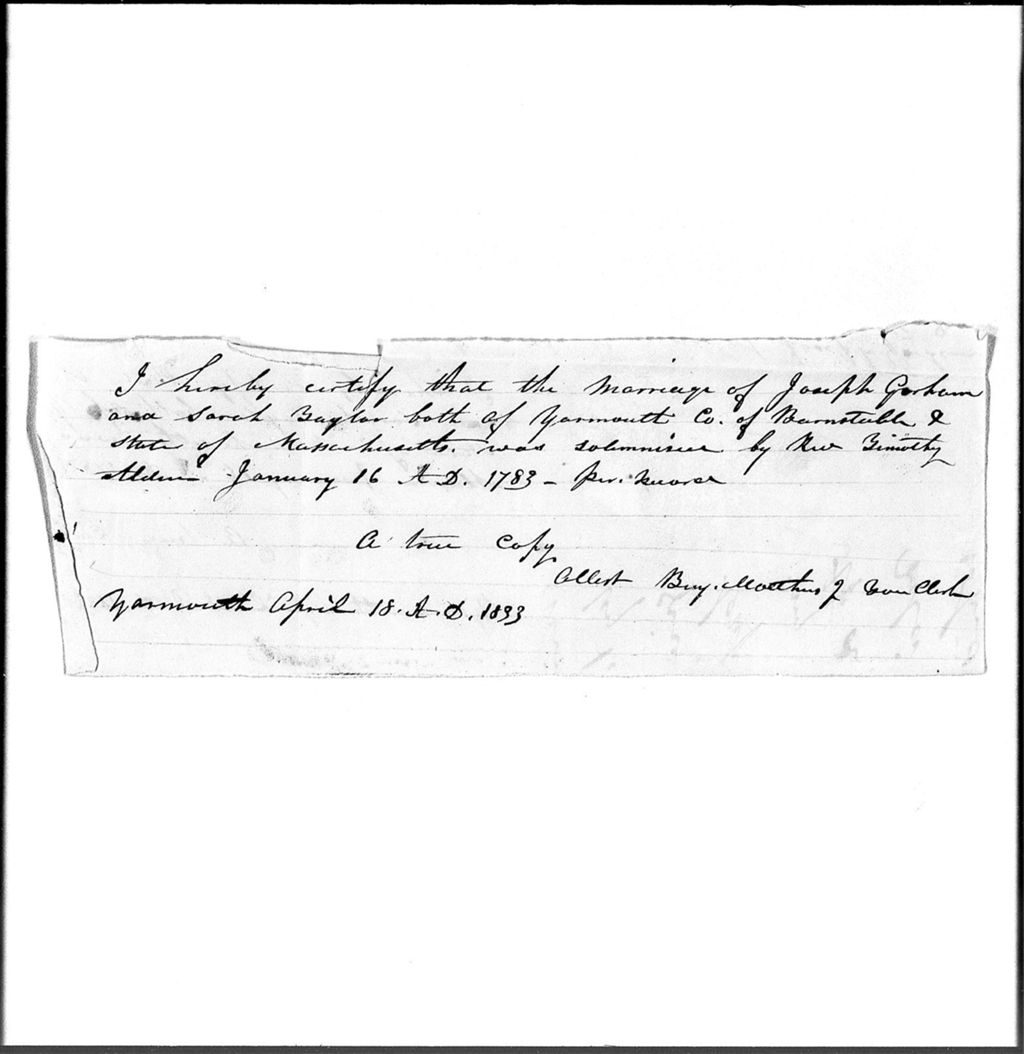 I hereby certify that the Marriage of Joseph Gorham
and Sarah Taylor both of Yarmouth Co. of Barnstable &
State of Massachusetts. was solemnised by Rev Timothy
Alden January 16 A.D. 1783 - per. Record
A true Copy
Attest Benj. Matthews J Town Clerk
Yarmouth April 18. A.D. 1833